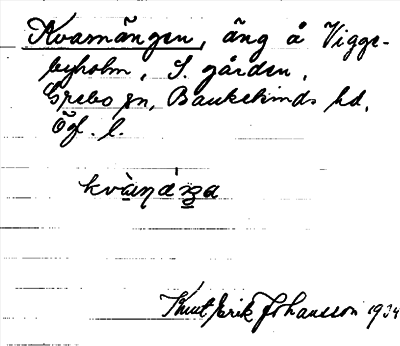 Kvarnängen, äng å Vigge-
byholm, S. gården,
Grebo sn, Bankekinds hd,
Ög. l.
Knut Erik Johansson 1934